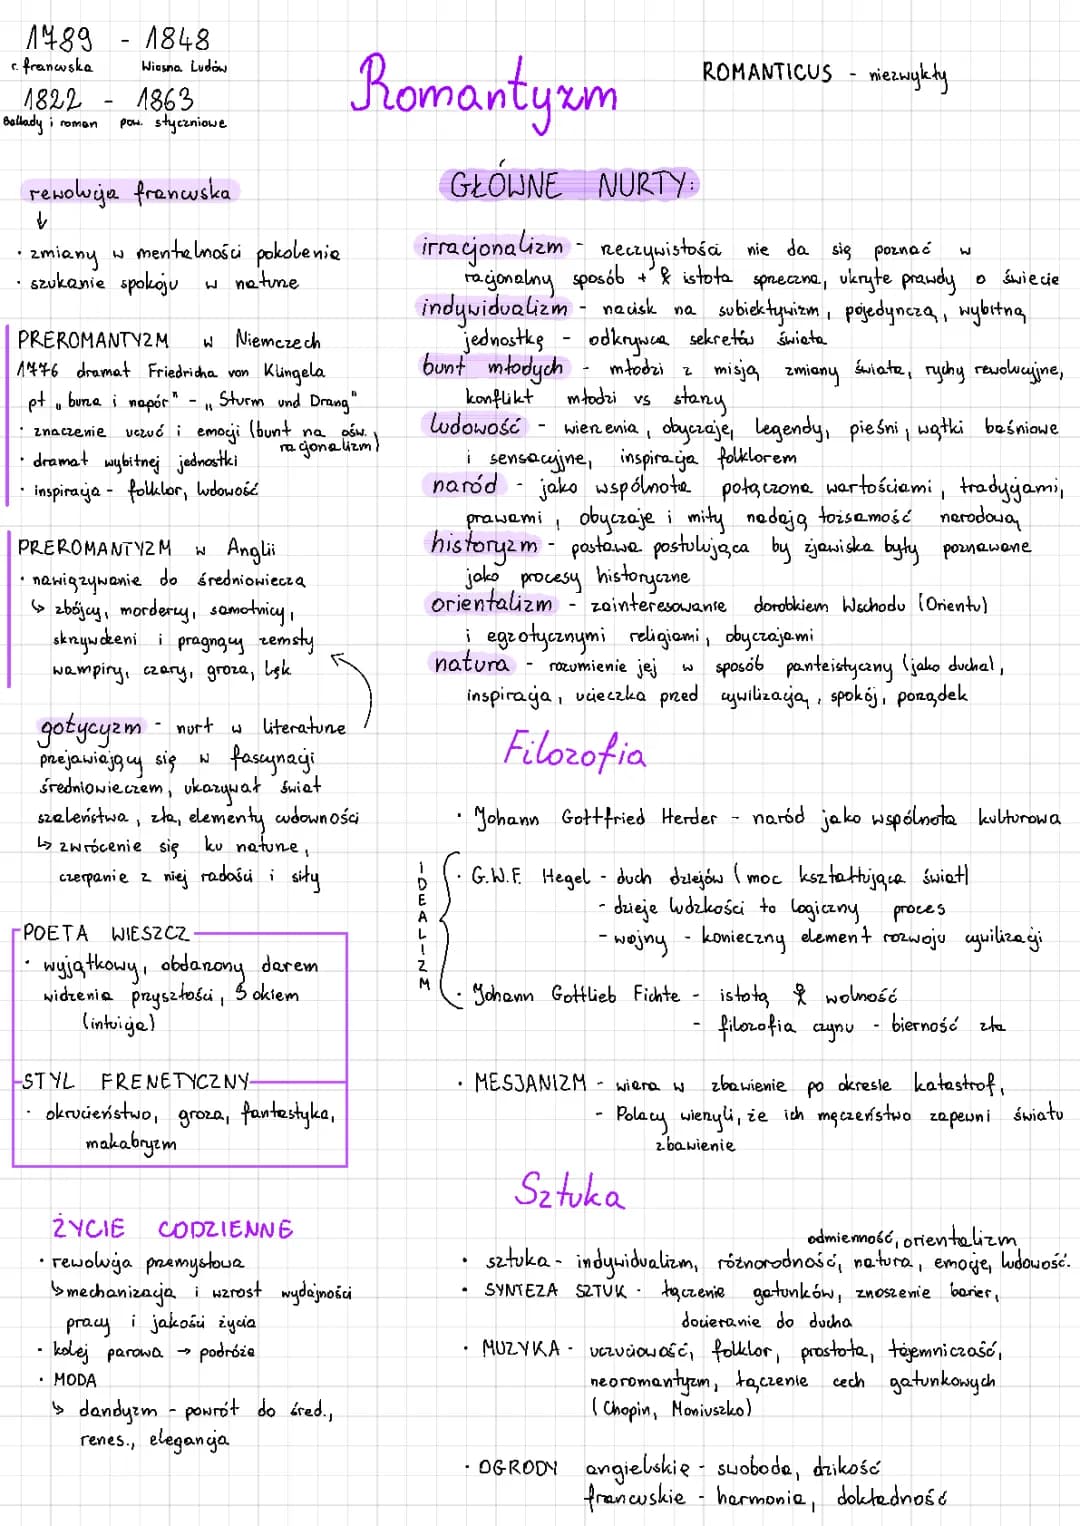 1789 - 1848
r. francuska Wiosna Ludów
1822 - 1863
Ballady i roman pow. styczniowe
Romantyzm
ROMANTICUS - niezwykły
rewolucja francuska
↓
· zmiany w mentalności pokolenia
· szukanie spokoju w naturze
PREROMANTYZM w Niemczech
1776 dramat Friedricha von Klingela
pt „burza i napór" - „Sturm und Drang"
· znaczenie uczuć i emocji (bunt na ośw.
racjonalizm)
· dramat wybitnej jednostki
· inspiracja - folklor, ludowość
PREROMANTYZM w Anglii
· nawiązywanie do średniowiecza
↳ zbójcy, mordercy, samotnicy,
skrzywdzeni i pragnący zemsty
wampiry, czary, groza, lęk
gotycyzm - nurt w literaturze
przejawiający się w fascynacji
średniowieczem, ukazywał świat
szaleństwa, zła, elementy cudowności
↳ zwrócenie się ku naturze,
czerpanie z niej radości i siły
POETA WIESZCZ
· wyjątkowy, obdarzony darem
widzenia przyszłości, 3 okiem
(intuicja)
STYL FRENETYCZNY
· okrucieństwo, groza, fantastyka,
makabryzm
ŻYCIE CODZIENNE
· rewolucja przemysłowa
↳ mechanizacja i wzrost wydajności
pracy i jakości życia
· kolej parowa → podróże
· MODA
↳ dandyzm - powrót do śred.,
renes., elegancja
GŁÓWNE NURTY:
irracjonalizm - rzeczywistości nie da się poznać w
racjonalny sposób + istota sprzeczna, ukryte prawdy o świecie
indywidualizm - nacisk na subiektywizm, pojedynczą, wybitną
jednostkę - odkrywca sekretów świata
bunt młodych - młodzi z misją zmiany świata, ruchy rewolucyjne,
konflikt młodzi vs starzy
ludowość - wierzenia, obyczaje, legendy, pieśni, wątki baśniowe
i sensacyjne, inspiracja folklorem
naród - jako wspólnota połączona wartościami, tradycjami,
prawami, obyczaje i mity nadają tożsamość narodową
historyzm - postawa postulująca by zjawiska były poznawane
jako procesy historyczne
orientalizm - zainteresowanie dorobkiem Wschodu (Orientu)
i egzotycznymi religiami, obyczajami
natura - rozumienie jej w sposób panteistyczny (jako ducha),
inspiracja, ucieczka przed cywilizacją, spokój, porządek
Filozofia
· Johann Gottfried Herder - naród jako wspólnota kulturowa
IDEALIZM
· G.W.F. Hegel - duch dziejów (moc kształtująca świat)
- dzieje ludzkości to logiczny proces
- wojny - konieczny element rozwoju cywilizacji
· Johann Gottlieb Fichte - istotą wolność
- filozofia czynu - bierność zła
· MESJANIZM - wiara w zbawienie po okresie katastrof,
- Polacy wierzyli, że ich męczeństwo zapewni światu
zbawienie
Sztuka
odmienność, orientalizm
· sztuka - indywidualizm, różnorodność, natura, emocje, ludowość.
· SYNTEZA SZTUK - łączenie gatunków, znoszenie barier,
docieranie do ducha
· MUZYKA - uczuciowość, folklor, prostota, tajemniczość,
neoromantyzm, łączenie cech gatunkowych
(Chopin, Moniuszko)
· OGRODY angielskię - swoboda, dzikość
francuskie - harmonia, dokładność